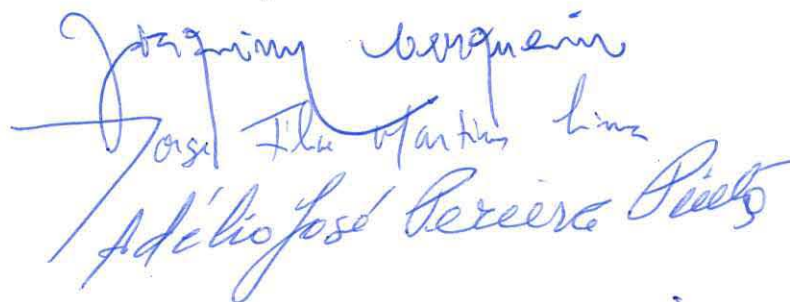 Joaquim Cerqueira
Jorge Martins Lima
Adélio José Pereira Pinto